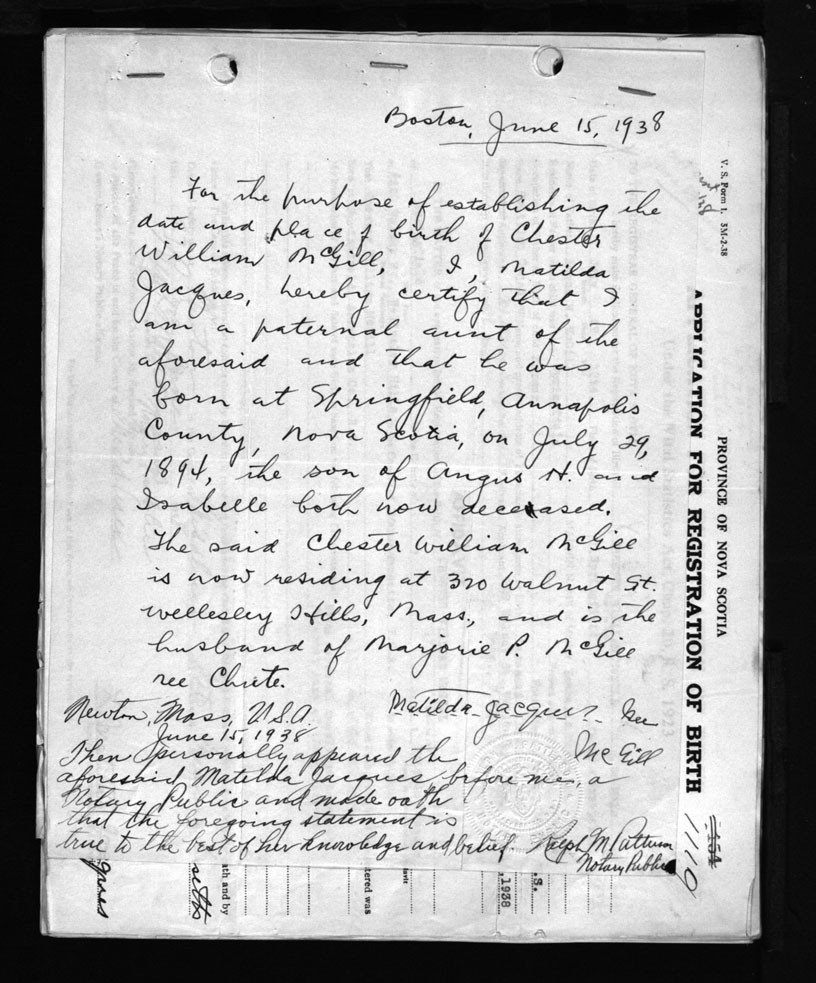 Boston, June 15, 1938
For the purpose of establishing the
date and place of birth of Chester
William McGill, I, Matilda
Jacques, hereby certify that I
am a paternal aunt of the
aforesaid and that he was
born at Springfield, Annapolis
County, Nova Scotia, on July 29,
1894, the son of Angus H. and
Isabelle both now deceased.
The said Chester William McGill
is now residing at 320 Walnut St.
Wellesley Hills, Mass., and is the
husband of Marjorie P. McGill
nee Chute.
Matilda Jacques nee
McGill
Newton, Mass, U.S.A.
June 15, 1938
Then personally appeared the
aforesaid, Matilda Jacques, before me, a
Notary Public and made oath
that the foregoing statement is
true to the best of her knowledge and belief. Ralph M. Patterson
Notary Public
V. S. Form 1. 5M-2-38
PROVINCE OF NOVA SCOTIA
APPLICATION FOR REGISTRATION OF BIRTH
11110
ath and by
tered was
1938